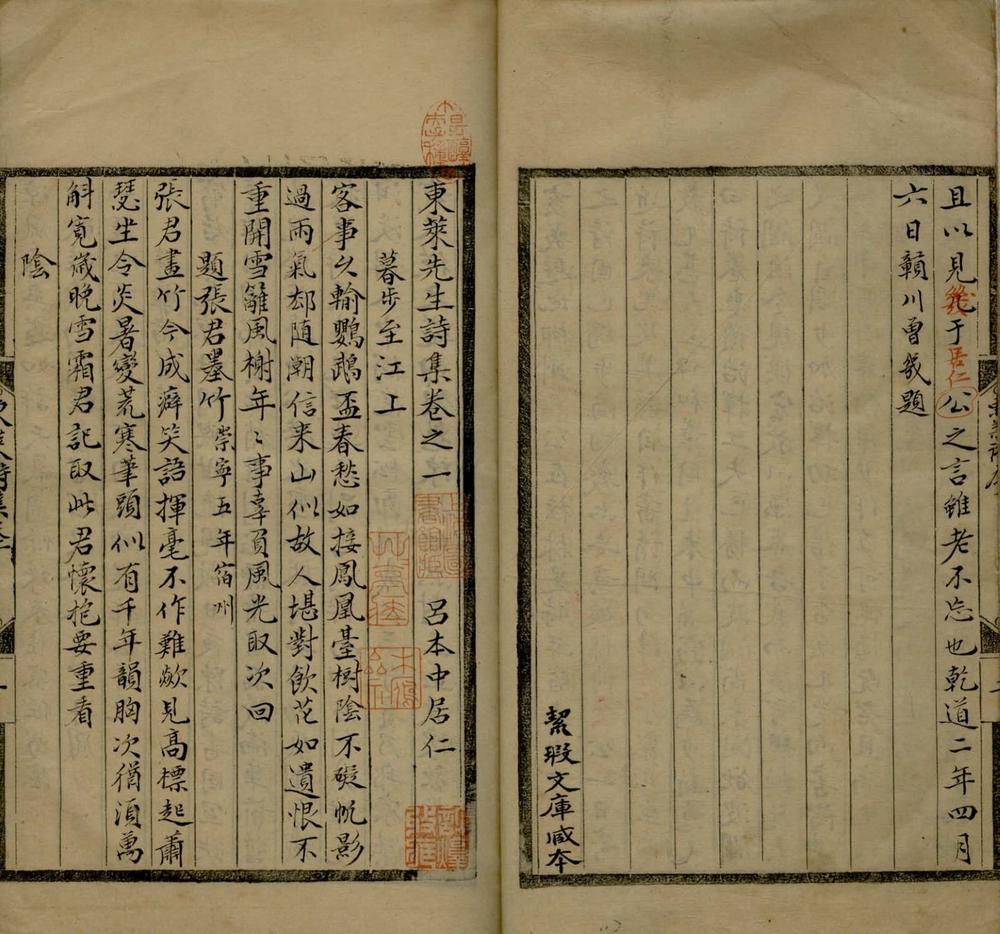 且以見幾于居仁公之言雖老不忘也乾道二年四月
六日贛川曾幾題
絜瑕文庫臧本
東萊先生詩集卷之一　呂本中居仁
暮步至江上
客事久輸鸚鵡盃春愁如接鳳凰臺樹陰不礙帆影
過雨氣却随潮信来山似故人堪對飲花如遺恨不
重開雪籬風榭年〻事辜負風光取次回
題張君墨竹 崇寧五年宿州
張君畫竹今成癖笑語揮毫不作難歘見高標起蕭
瑟坐令炎暑變荒寒筆頭似有千年韻胸次猶湏萬
斛寛歳晚雪霜君記取此君懷抱要重看
陰